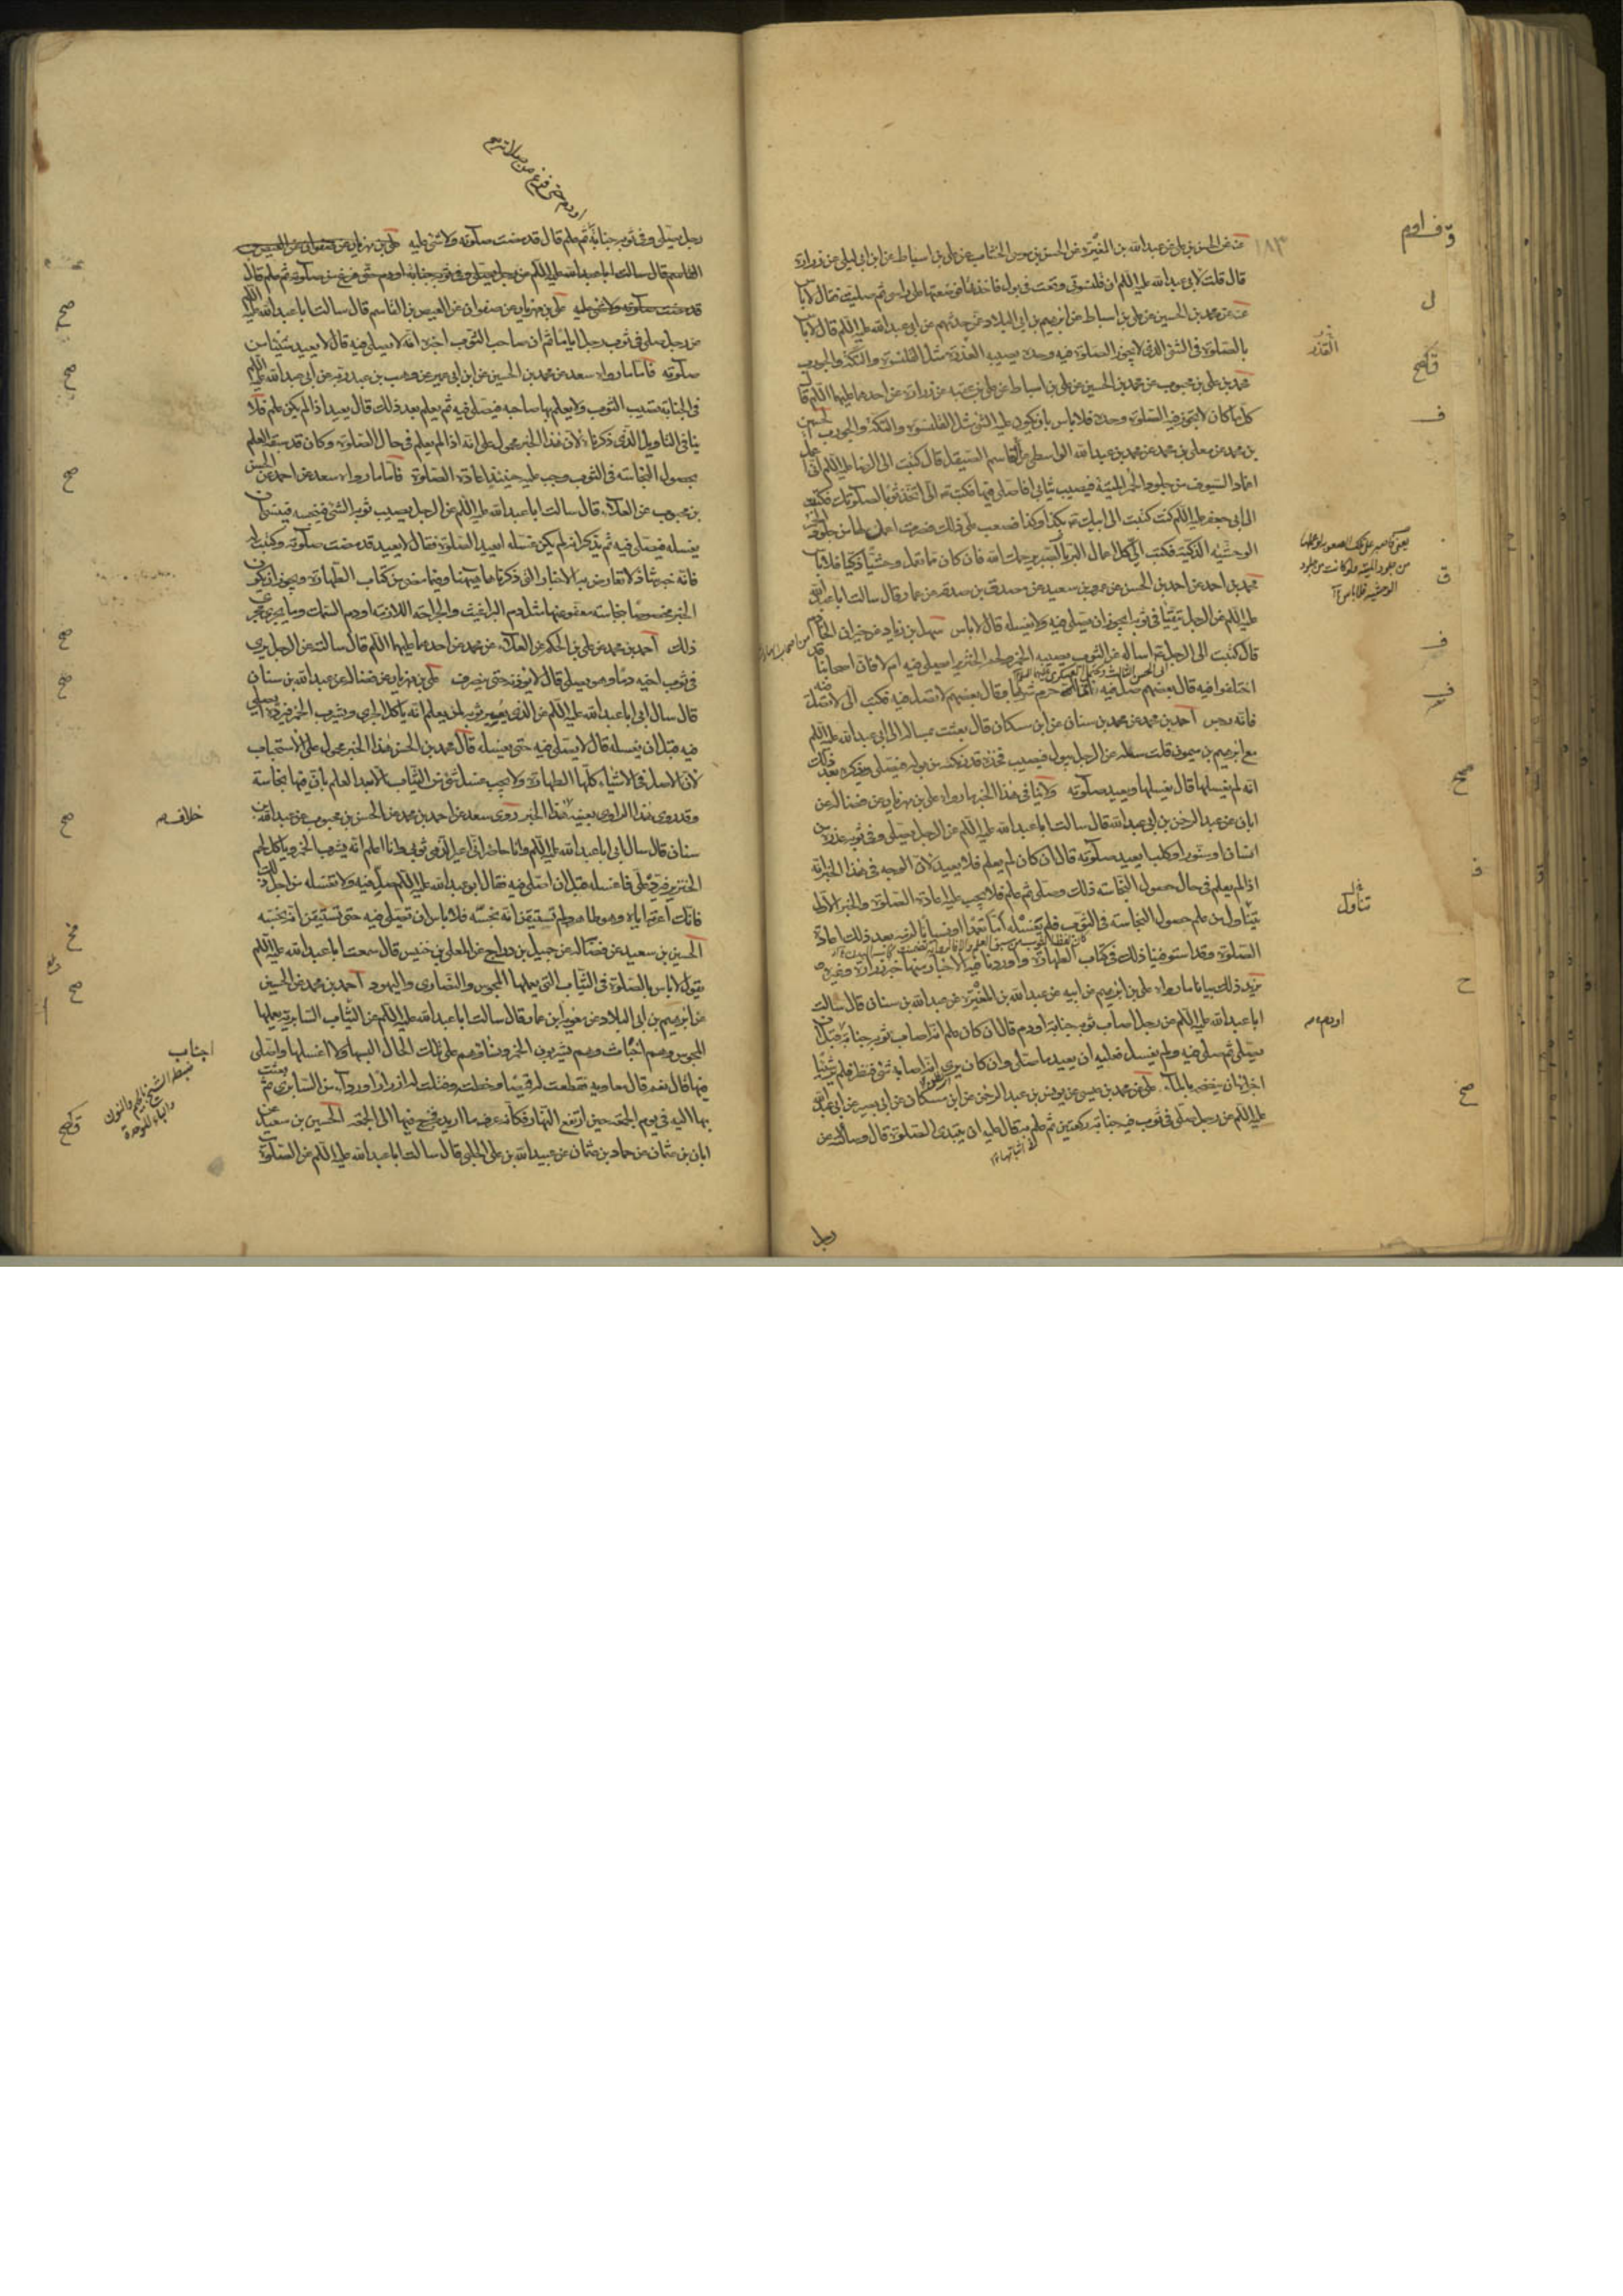 عنه عن الحسن بن علي عن عبد الله بن المغيرة عن الحسن بن موسى الخشاب عن علي بن اسباط عن ابن ابي ليلى عن زرارة
قال قلت لابي عبد الله عليه السلم ان قلنسوتي وقعت في بول فاخذتها فوضعتها على راسي ثم صليت فقال لا باس
عنه عن محمد بن الحسين عن علي بن اسباط عن ابرهيم بن ابي البلاد عمن حدثهم عن ابي عبد الله عليه السلم قال لا باس
بالصلوة في الشئ الذي لا يجوز الصلوة فيه وحده يصيبه القذر مثل القلنسوة والتكة والجورب
محمد بن علي بن محبوب عن محمد بن الحسين عن علي بن اسباط عن علي بن عقبة عن زرارة عن احدهما عليهما السلم قال
كل ما كان لا تجوز فيه الصلوة وحده فلا باس بان يكون عليه الشئ مثل القلنسوة والتكة والجورب الحسين
بن محمد عن معلى بن محمد عن محمد بن عبد الله الواسطي عن القاسم الصيقل قال كتبت الى الرضا عليه السلم اني اعمل
اغماد السيوف من جلود الحمر الميتة فيصيب ثيابي افاصلي فيها فكتب الي اتخذ ثوبا لصلوتك فكتبت
الى ابي جعفر عليه السلم كنت كتبت الى ابيك بكذا وكذا فصعب علي ذلك فصرت اعملها من جلود الحمر
الوحشية الذكية فكتب الي كل اعمال البر بالصبر يرحمك الله فان كان ما تعمل وحشيا ذكيا فلا باس
محمد بن احمد عن احمد بن الحسن عن عمرو بن سعيد عن مصدق بن صدقة عن عمار قال سالت ابا عبد الله
عليه السلم عن الرجل يتقيأ في ثوبه ايجوز ان يصلي فيه ولا يغسله قال لا باس سهل بن زياد عن خيران الخادم
قال كتبت الى الرجل اساله عن الثوب يصيبه الخمر ولحم الخنزير ايصلى فيه ام لا فان اصحابنا قد
اختلفوا فيه قال بعضهم صل فيه فان الله انما حرم شربها وقال بعضهم لا تصل فيه فكتب الي لا تصل فيه
فانه رجس احمد بن محمد عن محمد بن سنان عن ابن مسكان قال بعثت بمسالة الى ابي عبد الله عليه السلم
مع ابرهيم بن ميمون قلت سله عن الرجل يبول فيصيب فخذه قدر نكتة من بوله فيصلي ويذكر بعد ذلك
انه لم يغسلها قال يغسلها ويعيد صلوته ولا ينافي هذا الخبر ما رواه علي بن مهزيار عن فضالة عن
ابان عن عبد الرحمن بن ابي عبد الله قال سالت ابا عبد الله عليه السلم عن الرجل يصلي وفي ثوبه عذرة من
انسان او سنور او كلب ايعيد صلوته قال ان كان لم يعلم فلا يعيد لان الوجه في هذا الخبر انه
اذا لم يعلم في حال حصول النجاسة ذلك وصلى ثم علم فلا يجب عليه اعادة الصلوة والخبر الاول
يتناول من علم حصول النجاسة في الثوب فلم يغسله اما تعمدا او نسيانا لزمه بعد ذلك اعادة
الصلوة وقد استوفينا ذلك في كتاب الطهارة واوردنا فيه الاخبار منها خبر زرارة وغيره
يزيد ذلك بيانا ما رواه علي بن ابرهيم عن ابيه عن عبد الله بن المغيرة عن عبد الله بن سنان قال سالت
ابا عبد الله عليه السلم عن رجل اصاب ثوبه جنابة او دم قال ان كان علم انه اصاب ثوبه جنابة قبل ان
يصلي ثم صلى فيه ولم يغسله فعليه ان يعيد ما صلى وان كان يرى انه اصابه شئ فنظر فلم ير شيئا
اجزاه ان ينضحه بالماء علي عن محمد بن عيسى عن يونس بن عبد الرحمن عن ابن مسكان عن ابي بصير عن ابي عبد الله
عليه السلم عن رجل صلى في ثوب فيه جنابة ركعتين ثم علم به قال عليه ان يبتدئ الصلوة قال وسالته عن
رجل
القذر
يتناول
او دم
رجل يصلي وفي ثوبه جنابة ثم علم قال قد مضت صلوته ولا شئ عليه علي بن مهزيار عن صفوان عن العيص بن
القاسم قال سالت ابا عبد الله عليه السلم عن رجل يصلي وفي ثوبه جنابة او دم حتى فرغ من صلوته ثم علم قال
قد مضت صلوته ولا شئ عليه علي بن مهزيار عن صفوان عن العيص بن القاسم قال سالت ابا عبد الله عليه السلم
عن رجل صلى في ثوب رجل اياما ثم ان صاحب الثوب اخبره انه لا يصلى فيه قال لا يعيد شيئا من
صلوته فاما ما رواه سعد عن محمد بن الحسين عن ابن ابي عمير عن وهب بن عبد ربه عن ابي عبد الله عليه السلم
في الجنابة تصيب الثوب ولا يعلم بها صاحبه فيصلي فيه ثم يعلم بعد ذلك قال يعيد اذا لم يكن علم فلا
ينافي التاويل الذي ذكرناه لان هذا الخبر محمول على انه اذا لم يعلم في حال الصلوة وكان قد سبقه العلم
بحصول النجاسة في الثوب وجب عليه حينئذ اعادة الصلوة فاما ما رواه سعد عن احمد عن الحسن
بن محبوب عن العلاء قال سالت ابا عبد الله عليه السلم عن الرجل يصيب ثوبه الشئ فينجسه فينسى ان
يغسله فيصلي فيه ثم يذكر انه لم يكن غسله ايعيد الصلوة فقال لا يعيد قد مضت صلوته وكتبت له
فانه خبر شاذ لا تعارض به الاخبار التي ذكرناها هيهنا وفيما مضى من كتاب الطهارة ويجوز ان يكون
الخبر مخصوصا بنجاسة معفو عنها مثل دم البراغيث والجراحة اللازمة او دم السمك وما يجري مجرى
ذلك احمد بن محمد عن علي بن الحكم عن العلاء عن محمد عن احدهما عليهما السلم قال سالته عن الرجل يرى
في ثوب اخيه دما وهو يصلي قال لا يؤذنه حتى ينصرف علي بن مهزيار عن فضالة عن عبد الله بن سنان
قال سال ابي ابا عبد الله عليه السلم عن الذي يعير ثوبه لمن يعلم انه ياكل الجري ويشرب الخمر فيرده ايصلي
فيه قبل ان يغسله قال لا يصلي فيه حتى يغسله قال محمد بن الحسن هذا الخبر محمول على الاستحباب
لان الاصل في الاشياء كلها الطهارة ولا يجب غسل شئ من الثياب الا بعد العلم بان فيها نجاسة
وقد روى هذا الراوي بعينه خلاف هذا الخبر روى سعد عن احمد بن محمد عن الحسن بن محبوب عن عبد الله بن
سنان قال سال ابي ابا عبد الله عليه السلم وانا حاضر اني اعير الذمي ثوبي وانا اعلم انه يشرب الخمر وياكل لحم
الخنزير فيرده علي فاغسله قبل ان اصلي فيه فقال ابو عبد الله عليه السلم صل فيه ولا تغسله من اجل ذلك
فانك اعرته اياه وهو طاهر ولم تستيقن انه نجسه فلا باس ان تصلي فيه حتى تستيقن انه نجسه
الحسين بن سعيد عن فضالة عن جميل بن دراج عن المعلى بن خنيس قال سمعت ابا عبد الله عليه السلم
يقول لا باس بالصلوة في الثياب التي يعملها المجوس والنصارى واليهود احمد بن محمد عن الحسين
عن ابرهيم بن ابي البلاد عن معوية بن عمار قال سالت ابا عبد الله عليه السلم عن الثياب السابرية يعملها
المجوس وهم اخباث وهم يشربون الخمر ونساؤهم على تلك الحال البسها ولا اغسلها واصلي
فيها قال نعم قال معاوية فقطعت له قميصا وخطته وفتلت له ازرارا ورداء من السابري ثم بعثت
بها اليه في يوم الجمعة حين ارتفع النهار فكانه عرف ما اريد فخرج فيها الى الجمعة الحسين بن سعيد عن
ابان بن عثمان عن حماد بن عثمان عن عبيد الله بن علي الحلبي قال سالت ابا عبد الله عليه السلم عن الصلوة
خلاف
اجناب
ضبطه الشيخ بالجيم والنون
والباء الموحدة